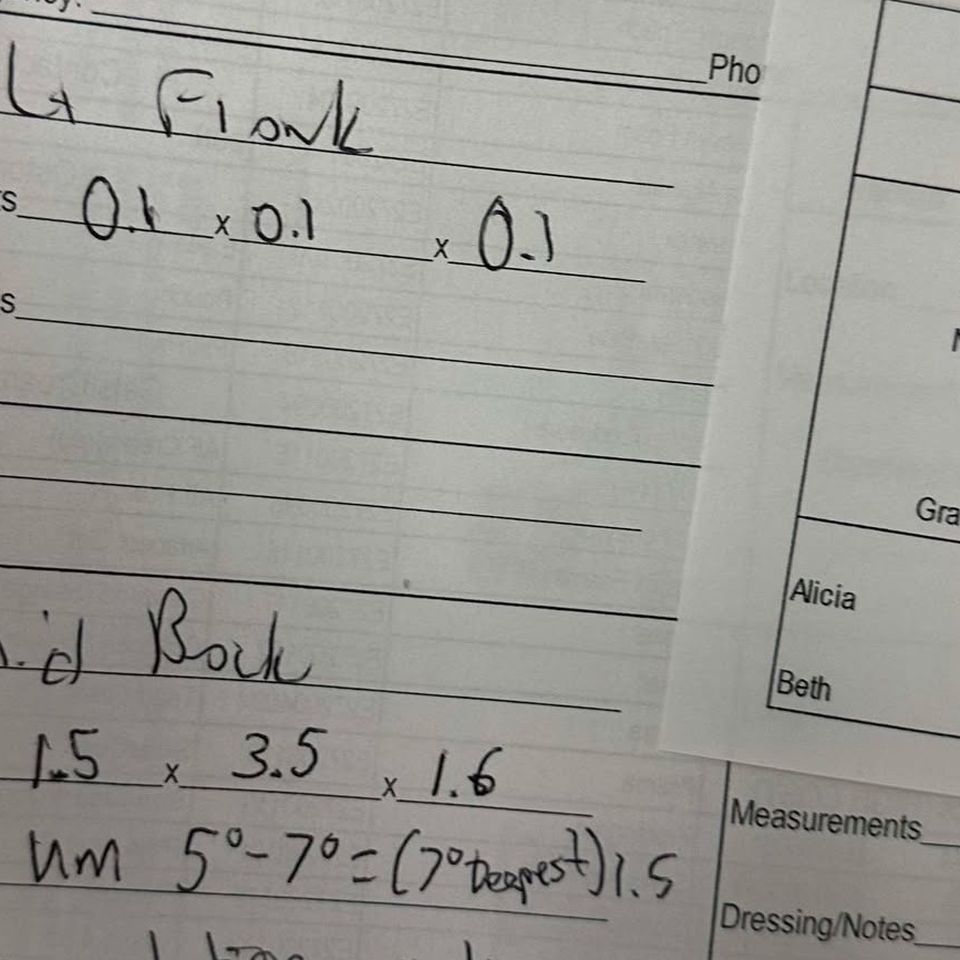 Pho
Lt Flank
0.1 x 0.1 x 0.1
Gra
Alicia
Beth
Mid Back
1.5 x 3.5 x 1.6
um 5° - 7° = (7° Deepest) 1.5
Measurements
Dressing/Notes